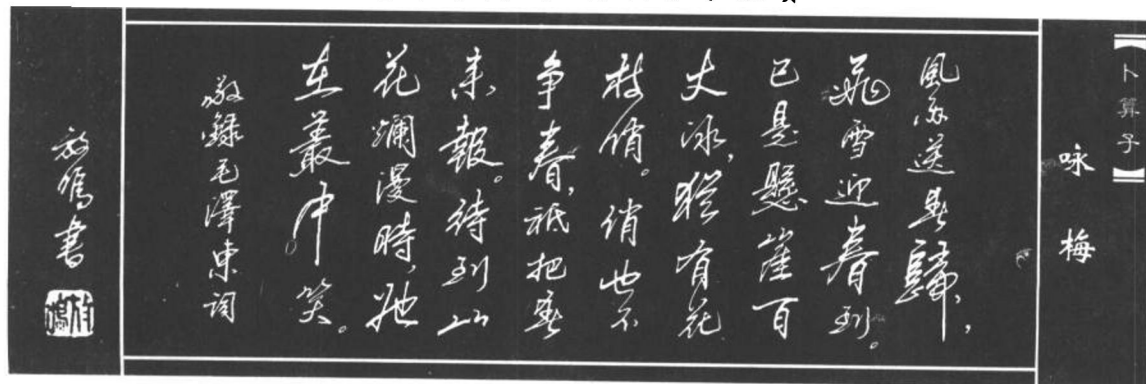 卜算子
咏梅
風雨送春歸，
飛雪迎春到。
已是懸崖百
丈冰，猶有花
枝俏。俏也不
争春，祗把春
來報。待到山
花爛漫時，她
在叢中笑。
敬錄毛澤東詞
書